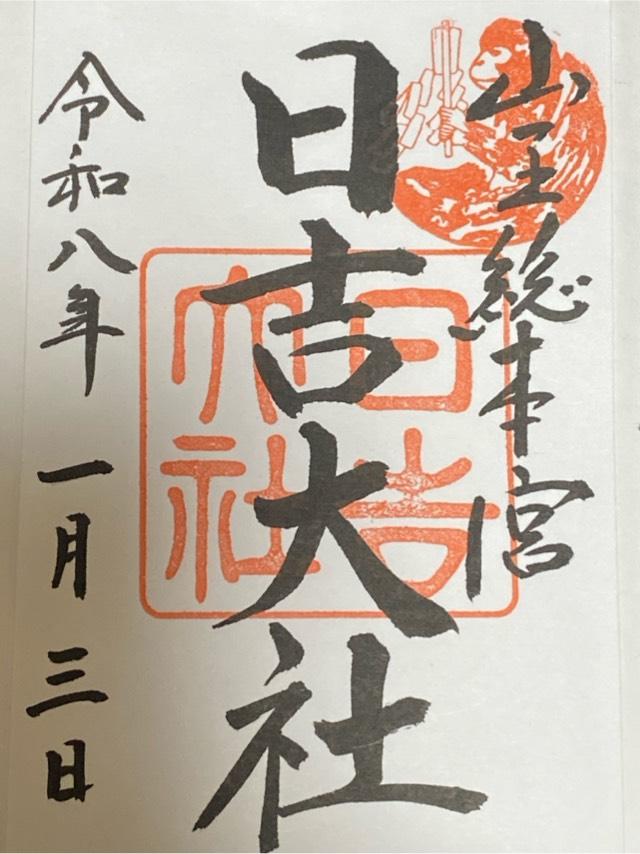 山王総本宮
日吉大社
日吉大社
令和八年 一月 三日